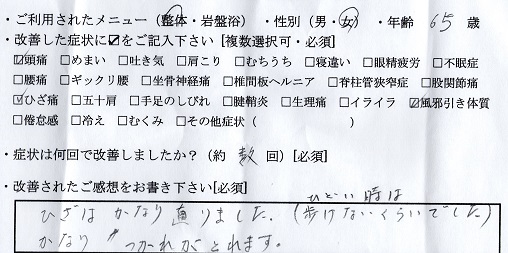 ・ご利用されたメニュー（整体・岩盤浴）・性別（男・女）・年齢 65 歳
・改善した症状に☑をご記入下さい [複数選択可・必須]
☑頭痛 □めまい □吐き気 □肩こり □むちうち □寝違い □眼精疲労 □不眠症
□腰痛 □ギックリ腰 □坐骨神経痛 □椎間板ヘルニア □脊柱管狭窄症 □股関節痛
☑ひざ痛 □五十肩 □手足のしびれ □腱鞘炎 □生理痛 □イライラ ☑風邪引き体質
□倦怠感 □冷え □むくみ □その他症状（ ）
・症状は何回で改善しましたか？（約 数 回）[必須]
・改善されたご感想をお書き下さい[必須]
ひどい時は
ひざは かなり 直りました。（歩けないくらいでした）
かなり つかれがとれます。